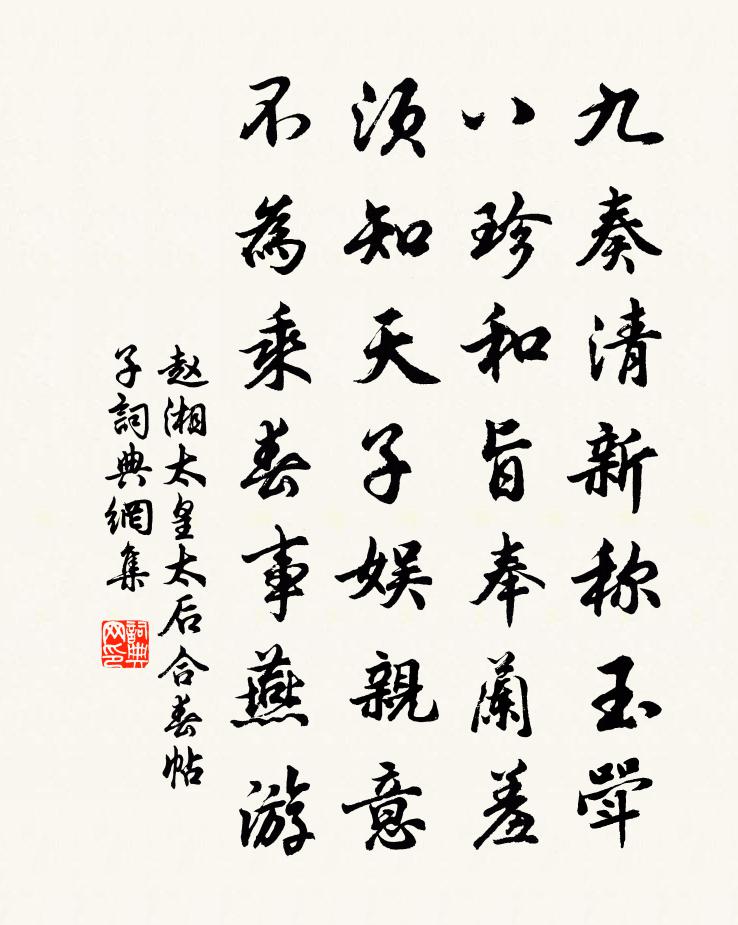 九奏清新称玉斝
八珍和旨奉蘭羞
须知天子娱親意
不為乘春事燕游
赵湘太皇太后合春帖
子詞典網集
詞典
网印